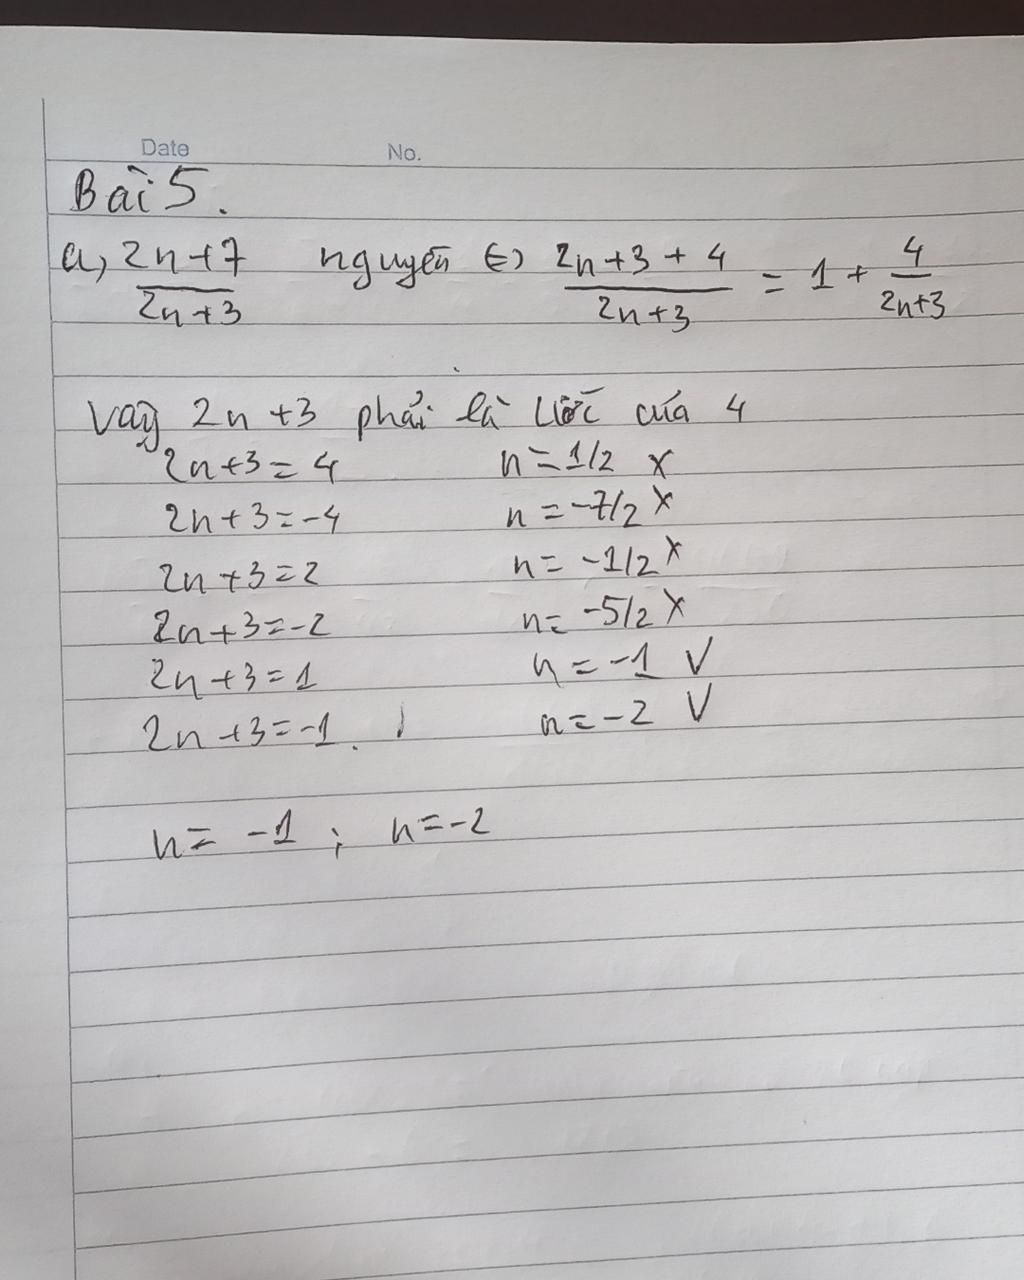 Date No.
Bài 5.
a, 2n+7/2n+3 nguyên ⇔ 2n+3+4/2n+3 = 1 + 4/2n+3
Vậy 2n+3 phải là ước của 4
2n+3=4 n=1/2 x
2n+3=-4 n=-7/2 x
2n+3=2 n=-1/2 x
2n+3=-2 n=-5/2 x
2n+3=1 n=-1 V
2n+3=-1. n=-2 V
n=-1; n=-2